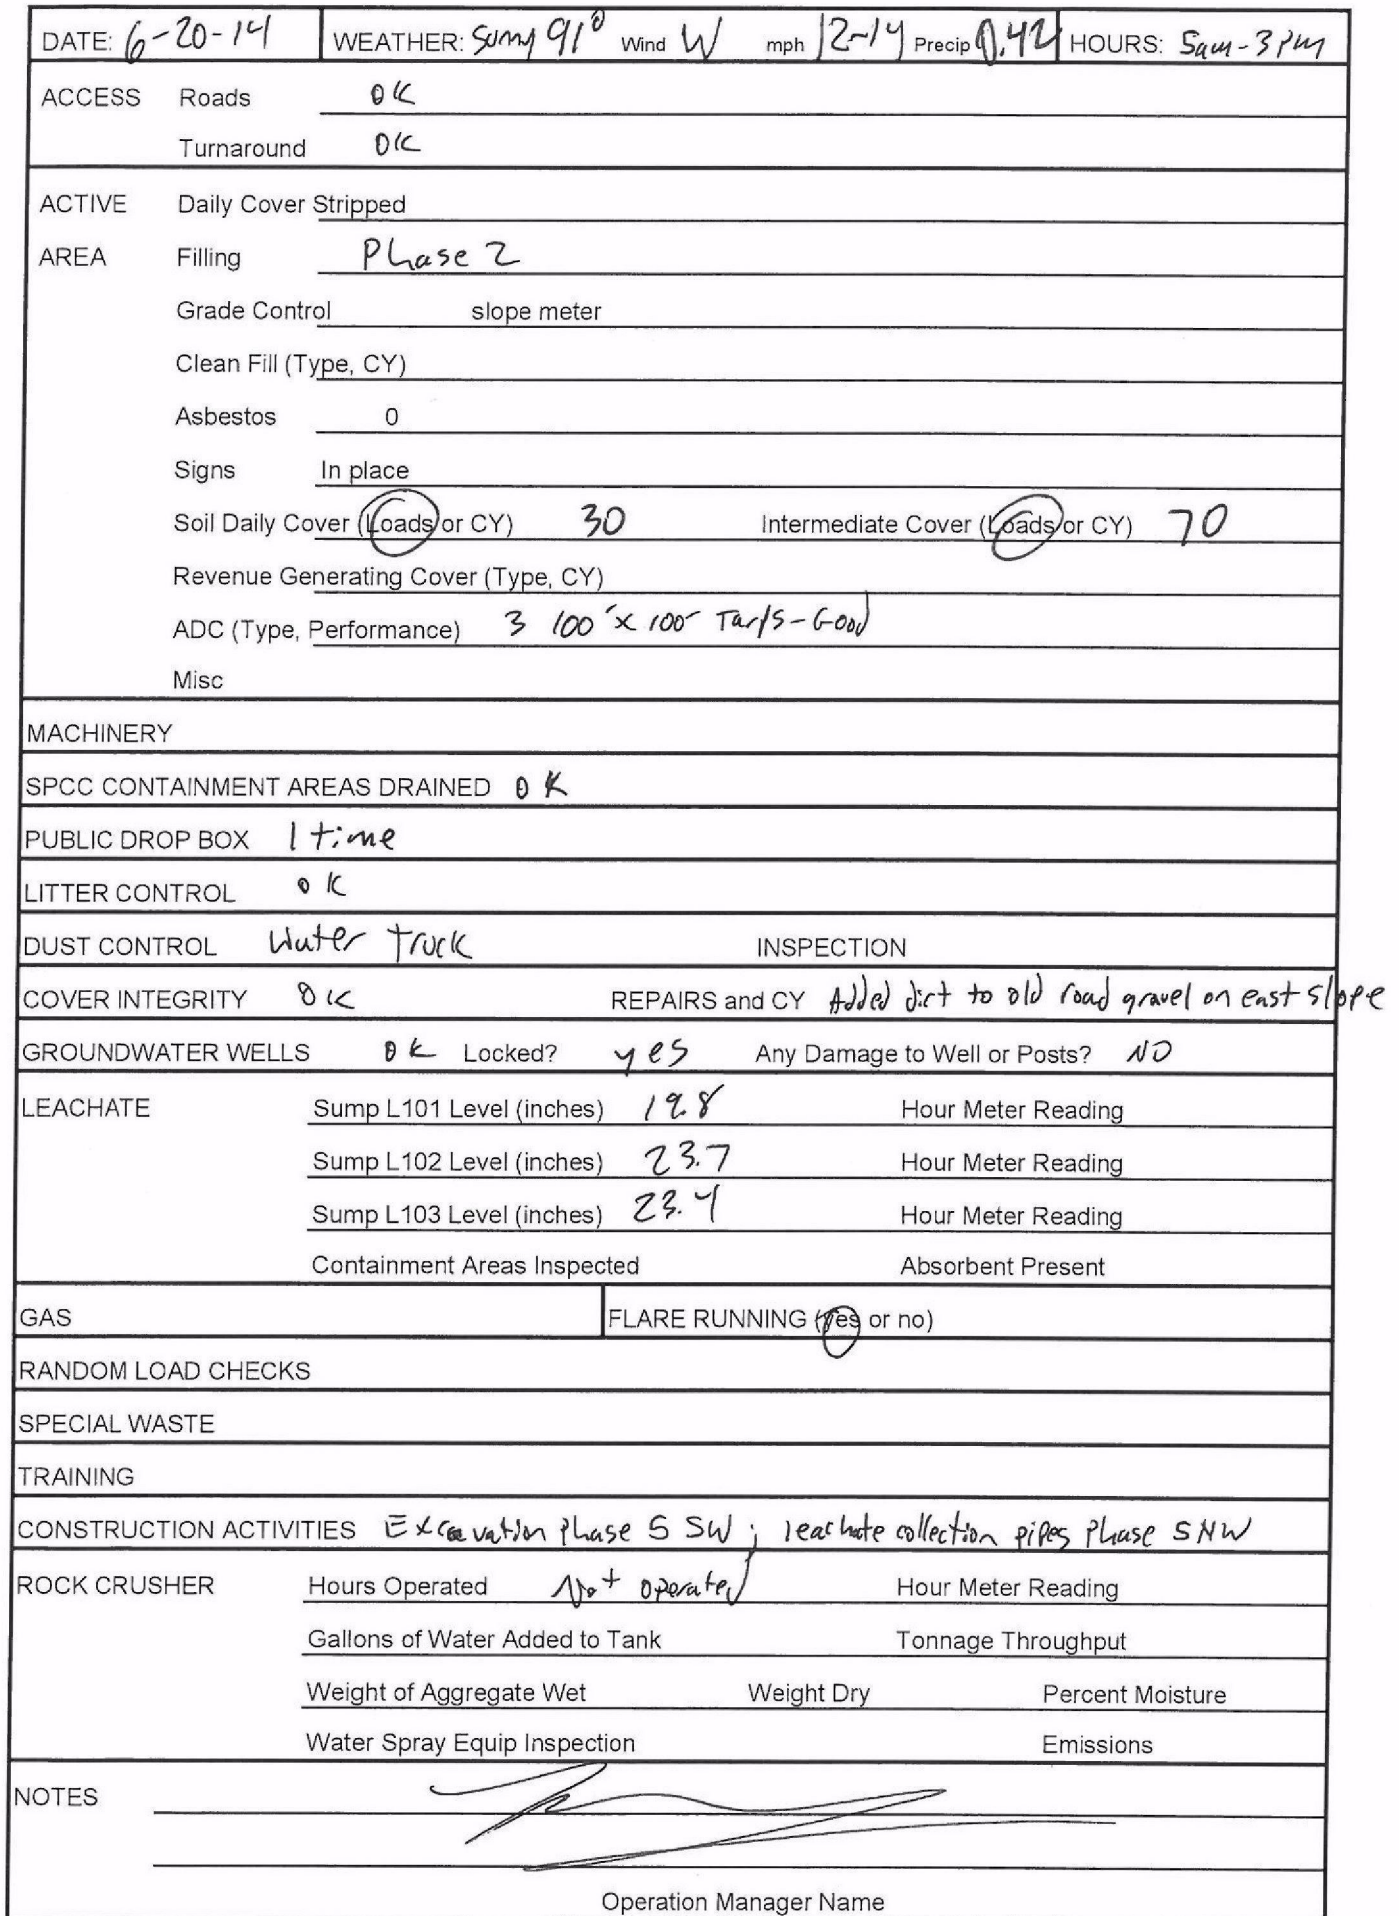 DATE: 6-20-14 WEATHER: Sunny 91° Wind W mph 12-14 Precip 0.42 HOURS: 5am-3pm
ACCESS Roads OK
Turnaround OK
ACTIVE Daily Cover Stripped
AREA Filling Phase 2
Grade Control slope meter
Clean Fill (Type, CY)
Asbestos 0
Signs In place
Soil Daily Cover (Loads or CY) 30 Intermediate Cover (Loads or CY) 70
Revenue Generating Cover (Type, CY)
ADC (Type, Performance) 3 100'x100' Tarps-Good
Misc
MACHINERY
SPCC CONTAINMENT AREAS DRAINED OK
PUBLIC DROP BOX 1 time
LITTER CONTROL OK
DUST CONTROL Water truck INSPECTION
COVER INTEGRITY OK REPAIRS and CY Added dirt to old road gravel on east slope
GROUNDWATER WELLS OK Locked? yes Any Damage to Well or Posts? NO
LEACHATE Sump L101 Level (inches) 19.8 Hour Meter Reading
Sump L102 Level (inches) 23.7 Hour Meter Reading
Sump L103 Level (inches) 23.4 Hour Meter Reading
Containment Areas Inspected Absorbent Present
GAS FLARE RUNNING (yes or no)
RANDOM LOAD CHECKS
SPECIAL WASTE
TRAINING
CONSTRUCTION ACTIVITIES Excavation Phase 5 SW; leachate collection pipes Phase 5 NW
ROCK CRUSHER Hours Operated Not operated Hour Meter Reading
Gallons of Water Added to Tank Tonnage Throughput
Weight of Aggregate Wet Weight Dry Percent Moisture
Water Spray Equip Inspection Emissions
NOTES
Operation Manager Name